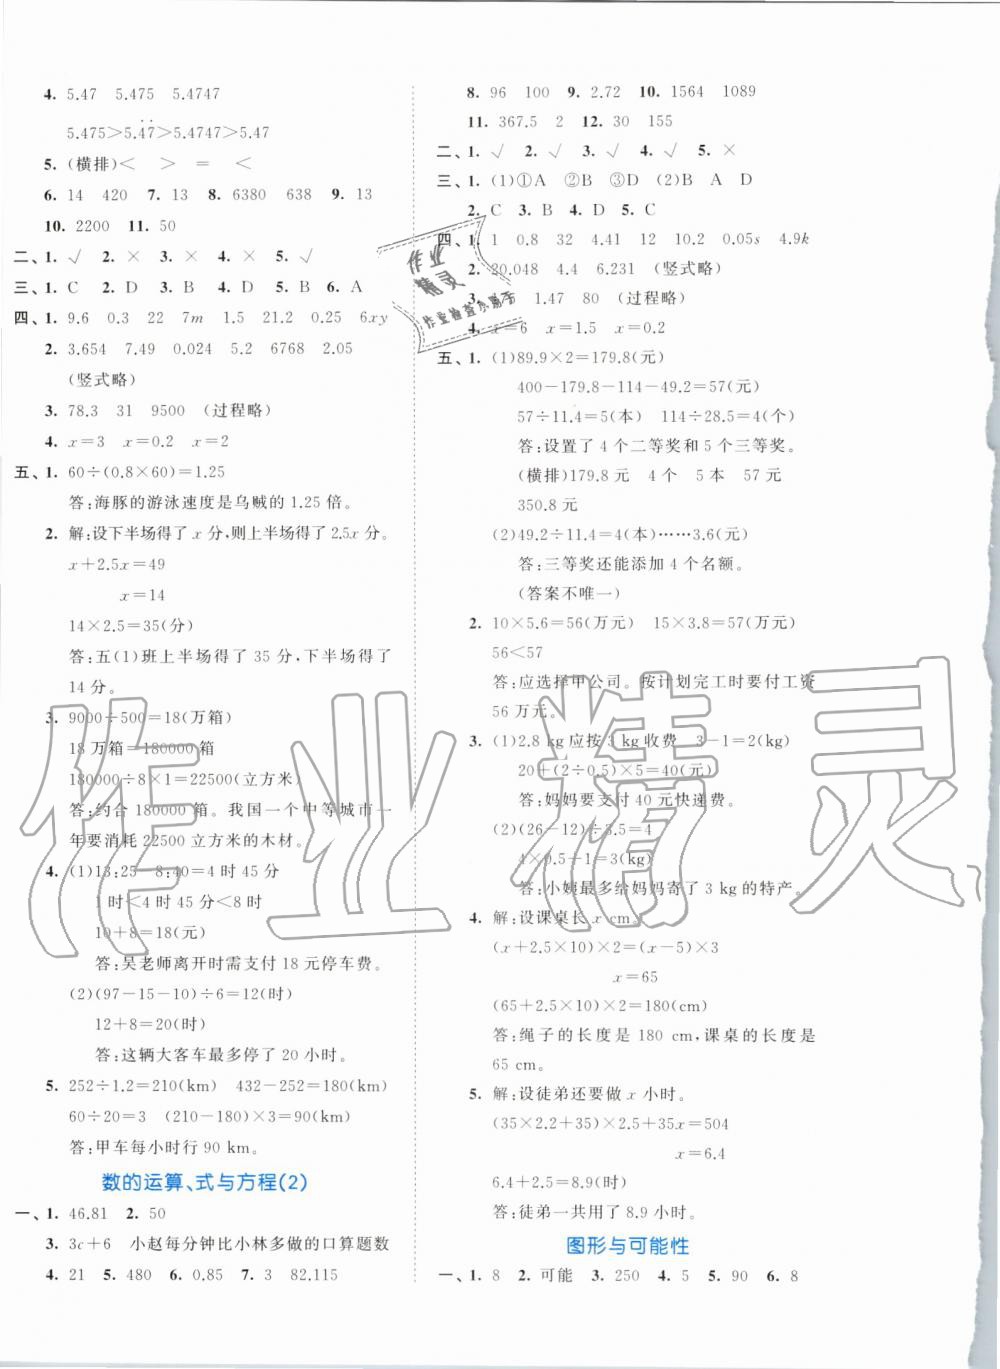 4. 5.47 5.475 5.4747
5.475＞5.4̇7̇＞5.4747＞5.47
5. (横排)＜ ＞ ＝ ＜
6. 14 420 7. 13 8. 6380 638 9. 13
10. 2200 11. 50
二、1. √ 2. × 3. × 4. × 5. √
三、1. C 2. D 3. B 4. D 5. B 6. A
四、1. 9.6 0.3 22 7m 1.5 21.2 0.25 6xy
2. 3.654 7.49 0.024 5.2 6768 2.05
(竖式略)
3. 78.3 31 9500 (过程略)
4. x＝3 x＝0.2 x＝2
五、1. 60÷(0.8×60)＝1.25
答:海豚的游泳速度是乌贼的 1.25 倍。
2. 解:设下半场得了 x 分,则上半场得了 2.5x 分。
x＋2.5x＝49
x＝14
14×2.5＝35(分)
答:五(1)班上半场得了 35 分,下半场得了
14 分。
3. 9000÷500＝18(万箱)
18 万箱＝180000 箱
180000÷8×1＝22500(立方米)
答:约合 180000 箱。我国一个中等城市一
年要消耗 22500 立方米的木材。
4. (1)13:25－8:40＝4 时 45 分
1 时＜4 时 45 分＜8 时
10＋8＝18(元)
答:吴老师离开时需支付 18 元停车费。
(2)(97－15－10)÷6＝12(时)
12＋8＝20(时)
答:这辆大客车最多停了 20 小时。
5. 252÷1.2＝210(km) 432－252＝180(km)
60÷20＝3 (210－180)×3＝90(km)
答:甲车每小时行 90 km。
数的运算、式与方程(2)
一、1. 46.81 2. 50
3. 3c＋6 小赵每分钟比小林多做的口算题数
4. 21 5. 480 6. 0.85 7. 3 82.115
8. 96 100 9. 2.72 10. 1564 1089
11. 367.5 2 12. 30 155
二、1. √ 2. √ 3. √ 4. √ 5. ×
三、1. (1)①A ②B ③D (2)B A D
2. C 3. B 4. D 5. C
四、1. 1 0.8 32 4.41 12 10.2 0.05s 4.9k
2. 20.048 4.4 6.231 (竖式略)
3. 1.47 80 (过程略)
4. x＝6 x＝1.5 x＝0.2
五、1. (1)89.9×2＝179.8(元)
400－179.8－114－49.2＝57(元)
57÷11.4＝5(本) 114÷28.5＝4(个)
答:设置了 4 个二等奖和 5 个三等奖。
(横排)179.8 元 4 个 5 本 57 元
350.8 元
(2)49.2÷11.4＝4(本)……3.6(元)
答:三等奖还能添加 4 个名额。
(答案不唯一)
2. 10×5.6＝56(万元) 15×3.8＝57(万元)
56＜57
答:应选择甲公司。按计划完工时要付工资
56 万元。
3. (1)2.8 kg应按 3 kg收费 3－1＝2(kg)
20＋(2÷0.5)×5＝40(元)
答:妈妈要支付 40 元快递费。
(2)(26－12)÷3.5＝4
4×0.5＋1＝3(kg)
答:小姨最多给妈妈寄了 3 kg的特产。
4. 解:设课桌长 x cm。
(x＋2.5×10)×2＝(x－5)×3
x＝65
(65＋2.5×10)×2＝180(cm)
答:绳子的长度是 180 cm,课桌的长度是
65 cm。
5. 解:设徒弟还要做 x 小时。
(35×2.2＋35)×2.5＋35x＝504
x＝6.4
6.4＋2.5＝8.9(时)
答:徒弟一共用了 8.9 小时。
图形与可能性
一、1. 8 2. 可能 3. 250 4. 5 5. 90 6. 8
作业
精灵
作业检查小帮手
作业精灵